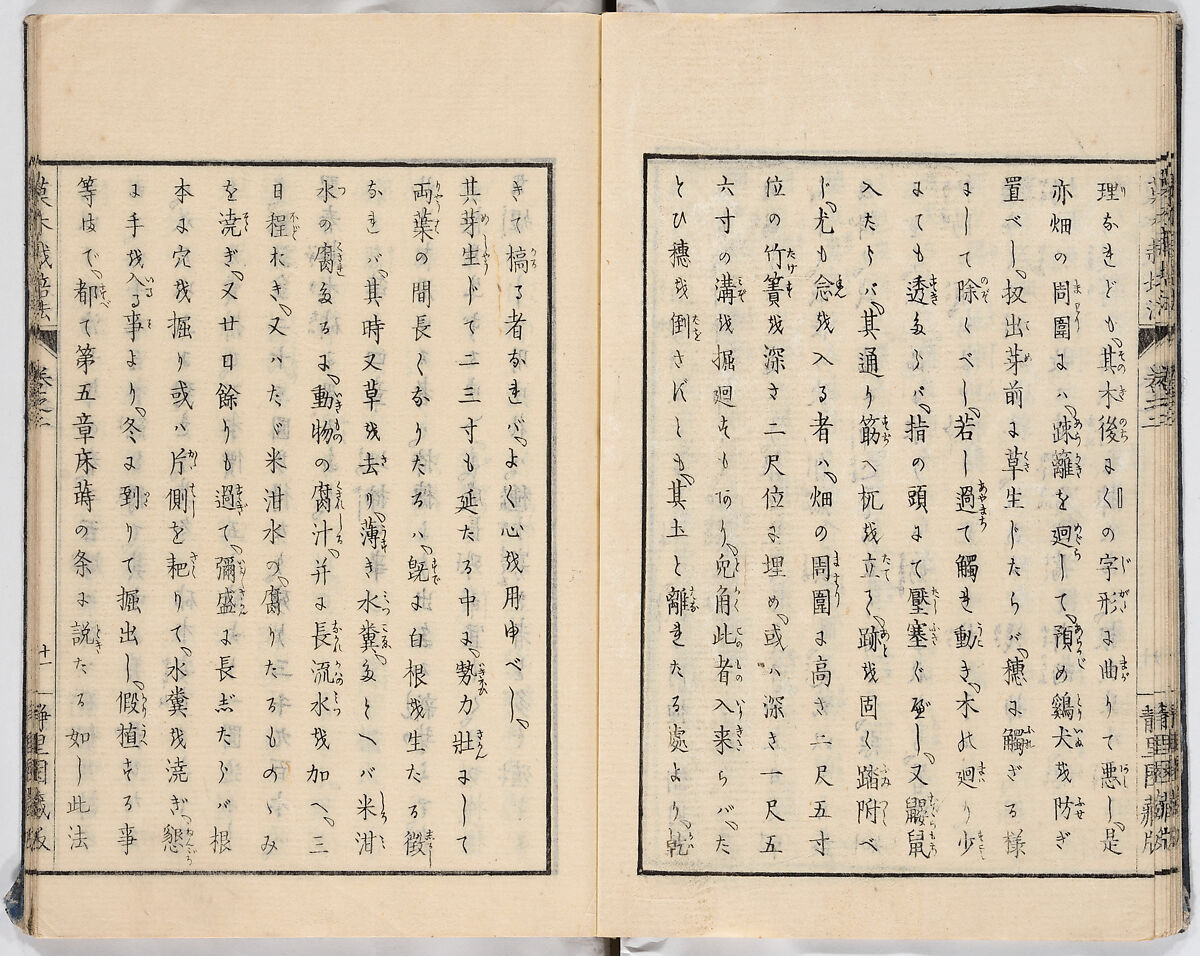 理なれども、其木後にくの字形に曲りて悪し、是
亦畑の周圍には、疎籬を廻して、預め鷄犬を防ぎ
置べし、扨出芽前に草生じたらバ、穗に觸ざる様
にして除くべし、若し過て觸れ動き、木の廻り少
にても透たらバ、指の頭にて壓塞ぐべし、又鼹鼠
入たらバ、其通り筋へ杭を立て、跡を固く踏附べ
し、尤も念を入る者ハ、畑の周圍に高さ二尺五寸
位の竹簀を深さ二尺位に埋め、或ハ深さ一尺五
六寸の溝を掘廻すも有り、兎角此者入来らバ、た
とひ穗を倒さずとも、其土と離れたる處より、乾
き槁る者なれバ、よく心を用申べし、
其芽生じて二三寸も延たる中は、勢力壯にして
両葉の間長くなりたるハ、既に白根を生たる徴
なれバ、其時又草を去り、薄き水糞たとへバ米泔
水の腐たるに、動物の腐汁、并に長流水を加へ、三
日程おき、又ハたゞ米泔水の、腐りたるものゝみ
を澆ぎ、又廿日餘りも過て、彌盛に長じたらバ根
本に穴を掘り或ハ片側を耙りて、水糞を澆ぎ、懇
に手を入る事より、冬に到りて掘出し、假植する事
等まで、都て第五章床蒔の条に説たる如し此法
草木栽培法
卷之二
十一
靜里園藏版